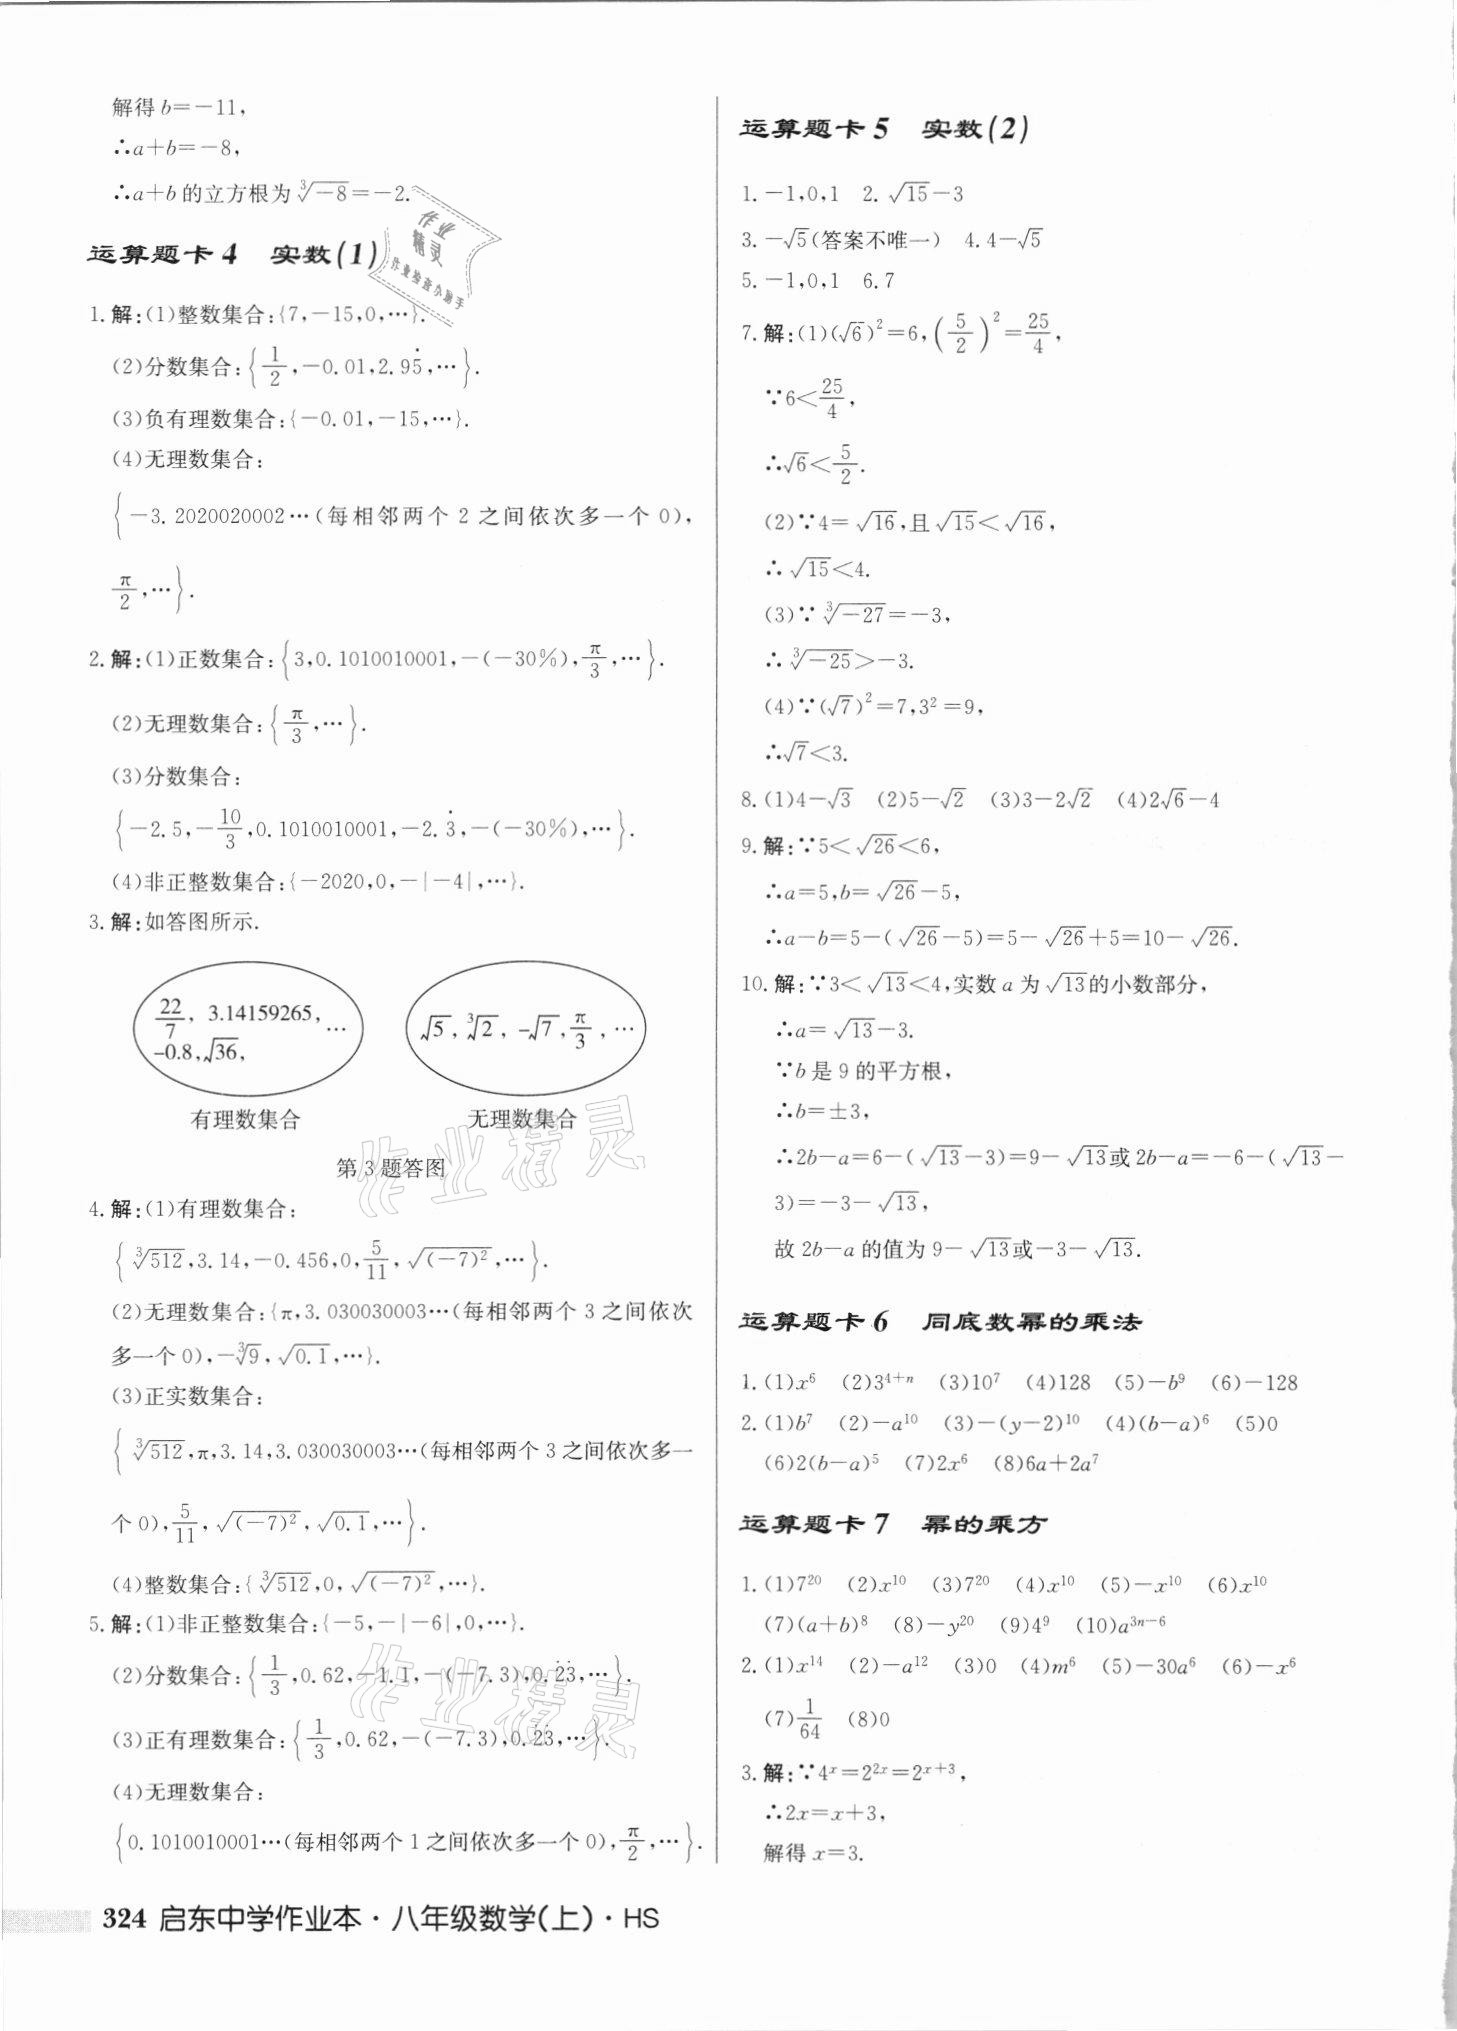 解得 b=-11,
∴a+b=-8,
∴a+b 的立方根为 ∛-8=-2.
运算题卡 4 实数(1)
1. 解:(1)整数集合:{7,-15,0,…}.
(2)分数集合:{1/2,-0.01,2.95̇,…}.
(3)负有理数集合:{-0.01,-15,…}.
(4)无理数集合:
{-3.2020020002…(每相邻两个 2 之间依次多一个 0),
π/2,…}.
2. 解:(1)正数集合:{3,0.1010010001,-(-30%),π/3,…}.
(2)无理数集合:{π/3,…}.
(3)分数集合:
{-2.5,-10/3,0.1010010001,-2.3̇,-(-30%),…}.
(4)非正整数集合:{-2020,0,-|-4|,…}.
3. 解:如答图所示.
22/7, 3.14159265, …
-0.8,√36,
√5, ∛2, -√7, π/3, …
有理数集合 无理数集合
第 3 题答图
4. 解:(1)有理数集合:
{∛512,3.14,-0.456,0,5/11,√(-7)²,…}.
(2)无理数集合:{π,3.030030003…(每相邻两个 3 之间依次
多一个 0),-∛9,√0.1,…}.
(3)正实数集合:
{∛512,π,3.14,3.030030003…(每相邻两个 3 之间依次多一
个 0),5/11,√(-7)²,√0.1,…}.
(4)整数集合:{∛512,0,√(-7)²,…}.
5. 解:(1)非正整数集合:{-5,-|-6|,0,…}.
(2)分数集合:{1/3,0.62,-1.1,-(-7.3),0.2̇3̇,…}.
(3)正有理数集合:{1/3,0.62,-(-7.3),0.2̇3̇,…}.
(4)无理数集合:
{0.1010010001…(每相邻两个 1 之间依次多一个 0),π/2,…}.
324 启东中学作业本·八年级数学(上)·HS
运算题卡 5 实数(2)
1. -1,0,1 2. √15-3
3. -√5(答案不唯一) 4. 4-√5
5. -1,0,1 6. 7
7. 解:(1)(√6)²=6,(5/2)²=25/4,
∵6<25/4,
∴√6<5/2.
(2)∵4=√16,且√15<√16,
∴√15<4.
(3)∵∛-27=-3,
∴∛-25>-3.
(4)∵(√7)²=7,3²=9,
∴√7<3.
8. (1)4-√3 (2)5-√2 (3)3-2√2 (4)2√6-4
9. 解:∵5<√26<6,
∴a=5,b=√26-5,
∴a-b=5-(√26-5)=5-√26+5=10-√26.
10. 解:∵3<√13<4,实数 a 为√13的小数部分,
∴a=√13-3.
∵b 是 9 的平方根,
∴b=±3,
∴2b-a=6-(√13-3)=9-√13或 2b-a=-6-(√13-
3)=-3-√13,
故 2b-a 的值为 9-√13或-3-√13.
运算题卡 6 同底数幂的乘法
1. (1)x⁶ (2)3⁴⁺ⁿ (3)10⁷ (4)128 (5)-b⁹ (6)-128
2. (1)b⁷ (2)-a¹⁰ (3)-(y-2)¹⁰ (4)(b-a)⁶ (5)0
(6)2(b-a)⁵ (7)2x⁶ (8)6a+2a⁷
运算题卡 7 幂的乘方
1. (1)7²⁰ (2)x¹⁰ (3)7²⁰ (4)x¹⁰ (5)-x¹⁰ (6)x¹⁰
(7)(a+b)⁸ (8)-y²⁰ (9)4⁹ (10)a³ⁿ⁻⁶
2. (1)x¹⁴ (2)-a¹² (3)0 (4)m⁶ (5)-30a⁶ (6)-x⁶
(7)1/64 (8)0
3. 解:∵4ˣ=2²ˣ=2ˣ⁺³,
∴2x=x+3,
解得 x=3.
作业
精灵
作业检查小助手
作业精灵
作业精灵